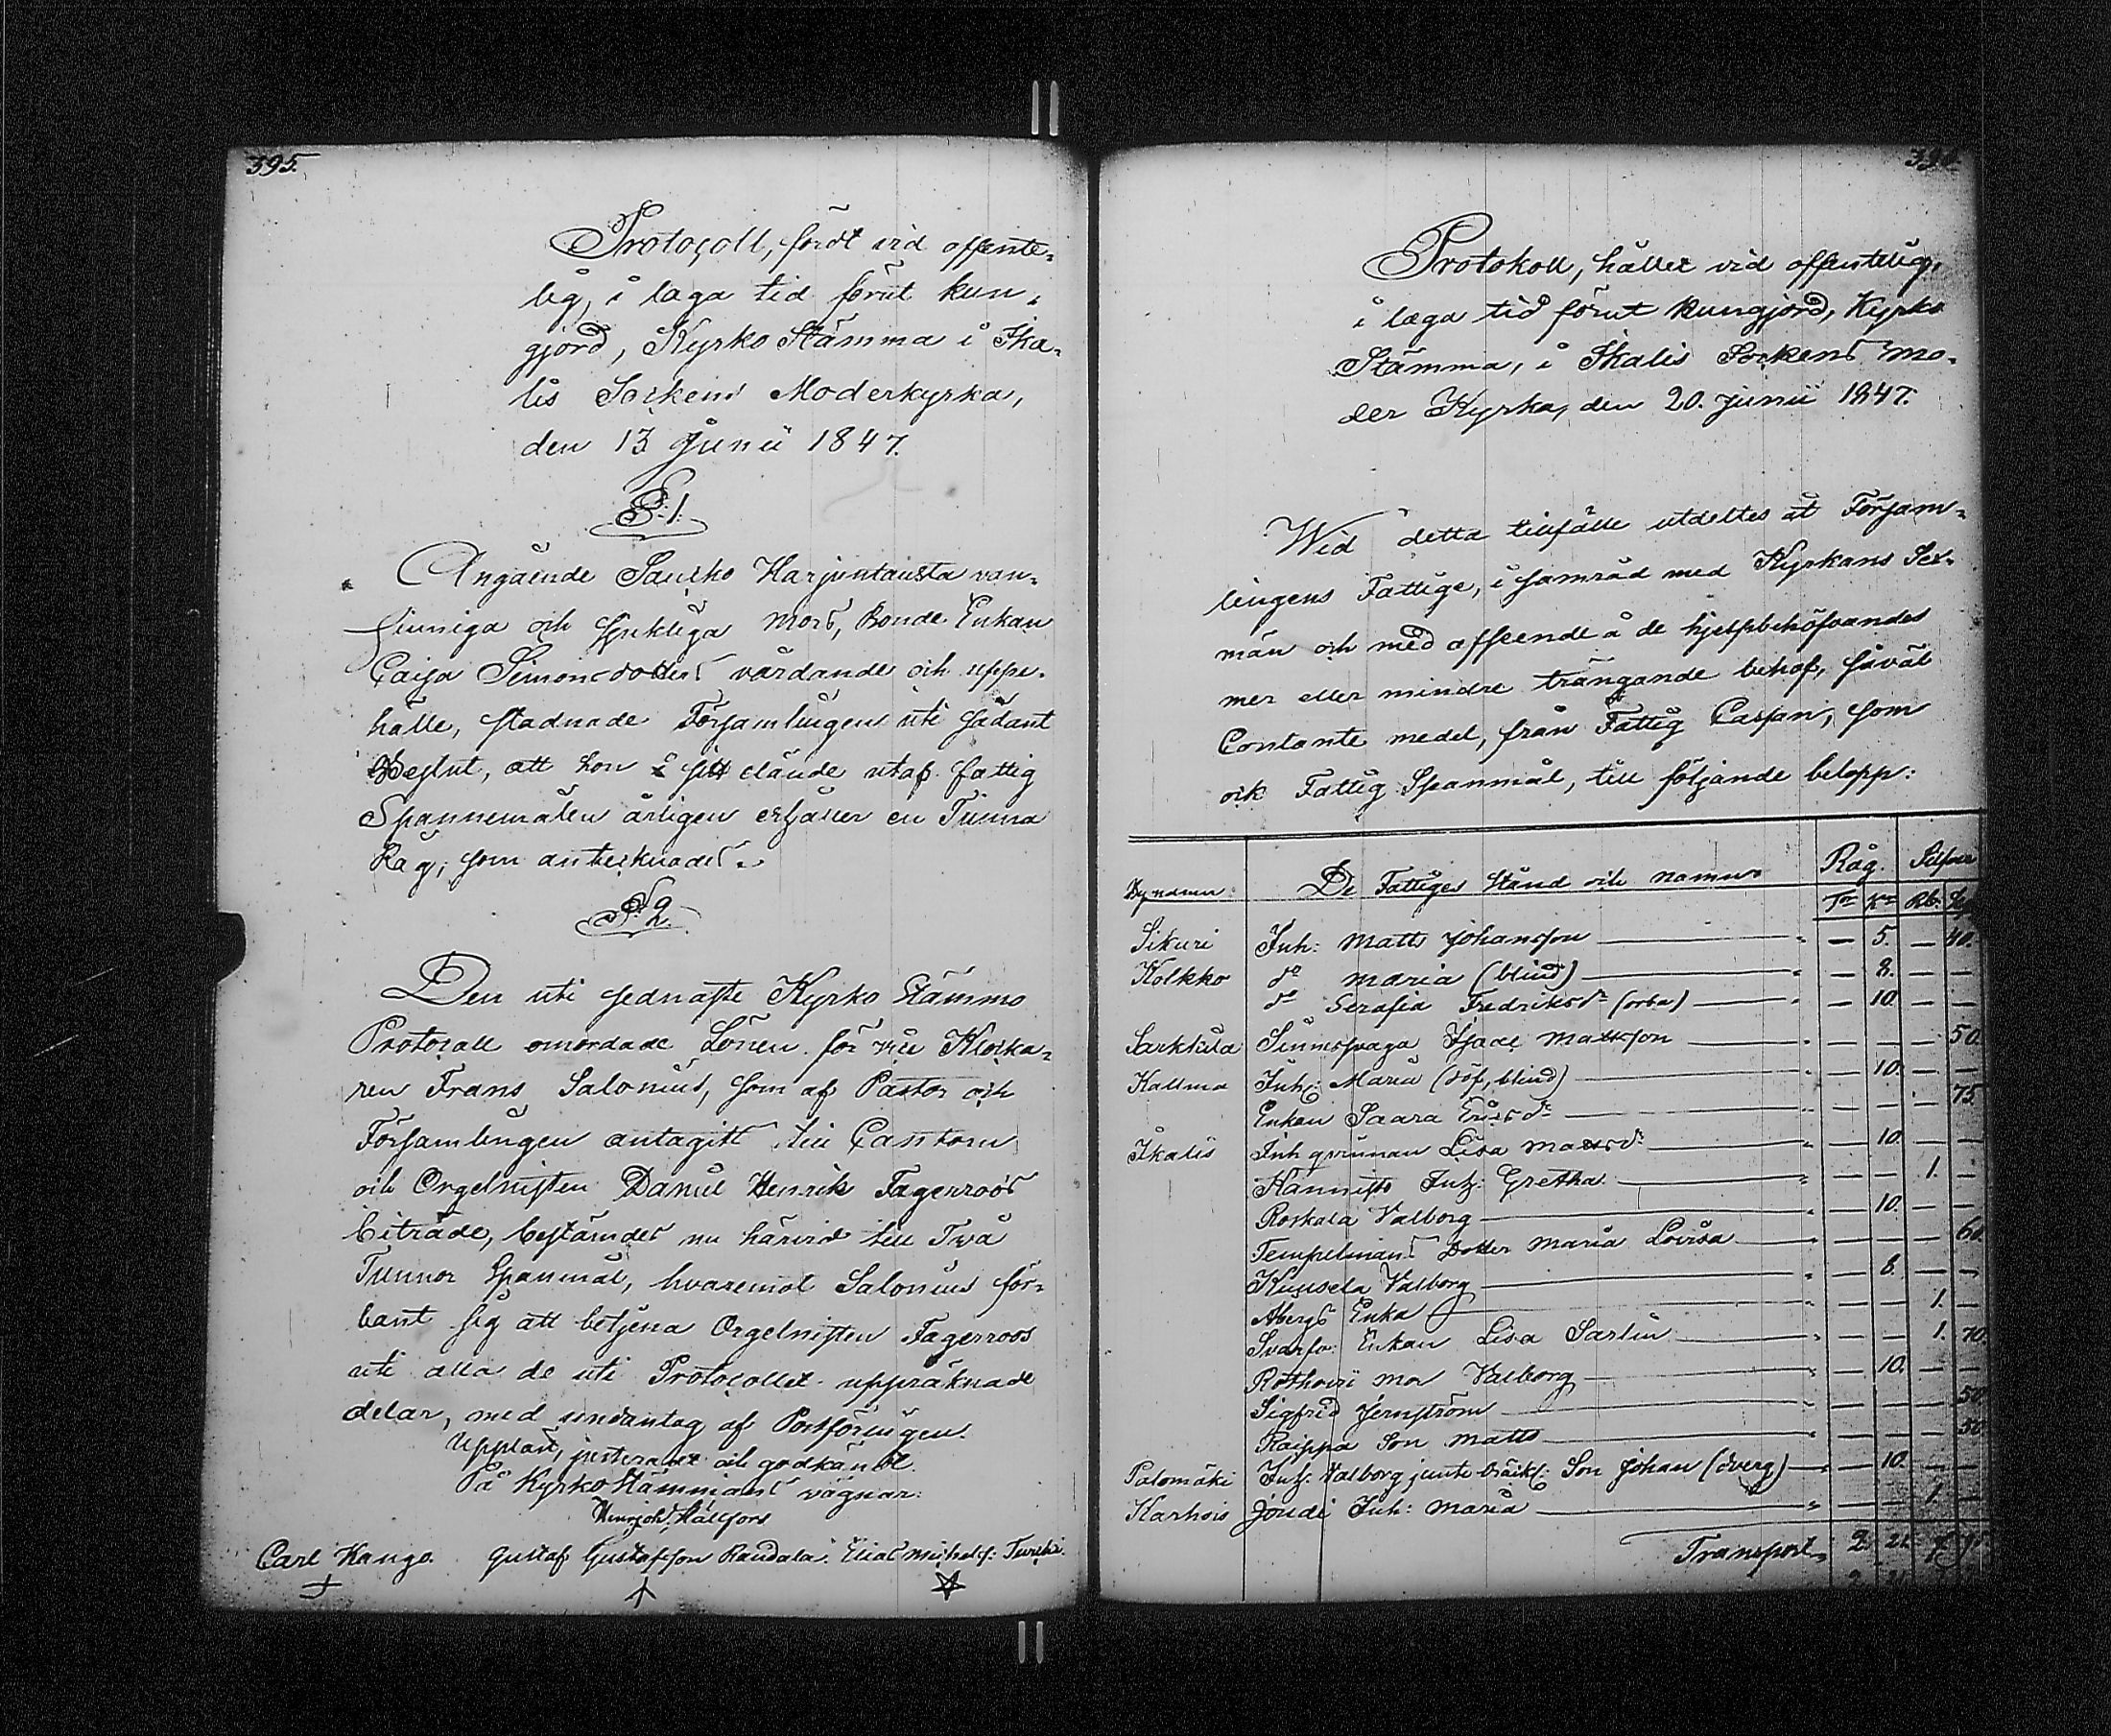 395.
Protocoll, fördt vid offente-
lig, i laga tid förut kun-
gjord, Kyrko Stämma i Ika-
lis Sockens Moderkyrka,
den 13 Junii 1847.
§.1.
Angående Sancko Harjuntausta van-
sinniga och sjukliga Mors, Bonde Enkan
Caisa Simonsdotters vårdande och uppe-
hälle, stadnade Församlingen uti sådant
Beslut, att hon i sitt elände utaf fattig
Spannemålen årligen erhåller en Tunna
Råg; som antecknades.
§.2.
Den uti sednaste Kyrko Stämmo
Protocoll omordade Lönen för vice Klocka-
ren Frans Salonius, som af Pastor och
Församlingen antagits till Cantorn
och Orgelnisten Daniel Henrik Fagerroos
biträde, bestämdes nu härvid till Två
Tunnor Spanmål, hvaremot Salonius för-
bant sig att betjena Orgelnisten Fagerroos
uti alla de uti Protocollet uppräknade
delar, med undantag af Postföringen.
Uppläst, justeradt och godkändt.
På Kyrko Stämmans vägnar:
Henr. Joh. Hällfors
Carl Kango. Gustaf Gustafsson Raudala. Elias Michelss: Turkki.
Protokoll, hållet vid offentelig,
i laga tid förut kungjord, Kyrko
Stämma, i Ikalis Sockens Mo-
der Kyrka, den 20. Junii 1847.
Wid detta tillfälle utdeltes åt Försam-
lingens Fattige, i samråd med Kyrkans Sex-
män och med afseende å de hjelpbehöfvandes
mer eller mindre trängande behof, såväl
Contante medel, från Fattig Cassan, som
ock Fattig Spanmål, till följande belopp:
Byarne De Fattiges stånd och namn Råg. Silfver
Tr Kr Rb.
Sikuri Inh: Matts Johansson — 5. — 40.
Kolkko do Maria (blind) — 8. — —
do Serafia Fredriksdr (orba) — 10. — —
Sarkkila Sinnessvaga Isaac Mattsson — — — 50.
Kallma Inh: Maria (döf, blind) — 10. — —
Enkan Saara Ericsdr — — — 75.
Ikalis Inh qvinnan Lisa Mattsdr — 10. — —
Hannisto Inh: Gretha — — 1. —
Roskala Valborg — 10. — —
Tempelmans Dotter Maria Lovisa — — — 60.
Kuusela Valborg — 8. — —
Åbergs Enka — — 1. —
Svarfv: Enkan Lisa Sarlin — — 1. 70.
Rothovi mor Valborg — 10. — —
Sigfrid Jernström — — — 50
Raippa Son Matts — — — 50
Palomäki Inh: Valborg jemte bräckl: Son Johan (dverg) — 10. — —
Karhois Joudi Inh: Maria — — 1. —
Transport 2. 21.